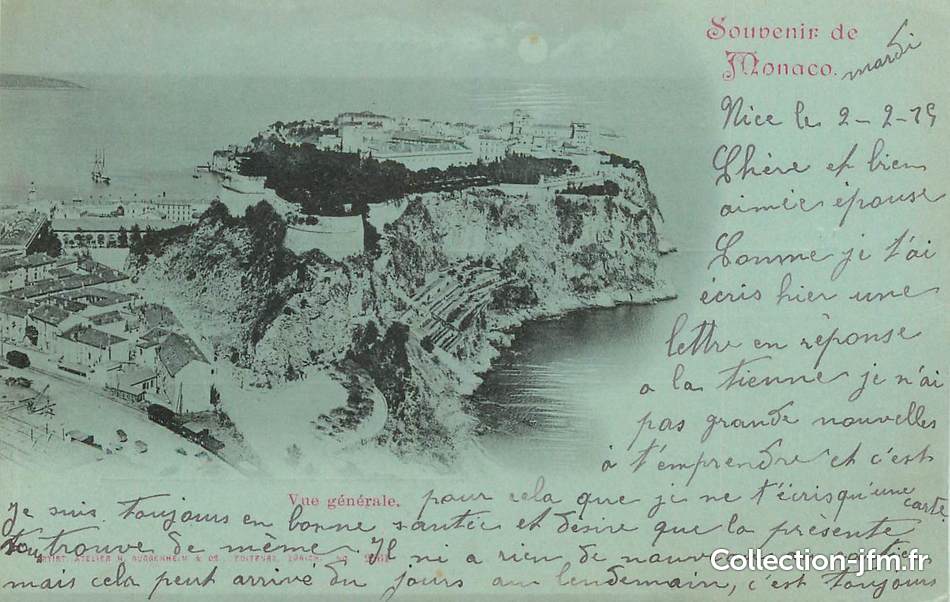 Souvenir de
Monaco.
mardi
Nice le 2-2-15
Chère et bien
aimée épouse
Comme je t'ai
écris hier une
lettre en réponse
a la tienne je n'ai
pas grande nouvelles
à t'emprendre et c'est
Vue générale.
pour cela que je ne t'écrisqu'une
carte
Je suis toujours en bonne santée et désire que la présente
trouve de même. Il ni a rien de nouveau
mais cela peut arrive du jours au lendemain, c'est toujours
Collection-jfm.fr